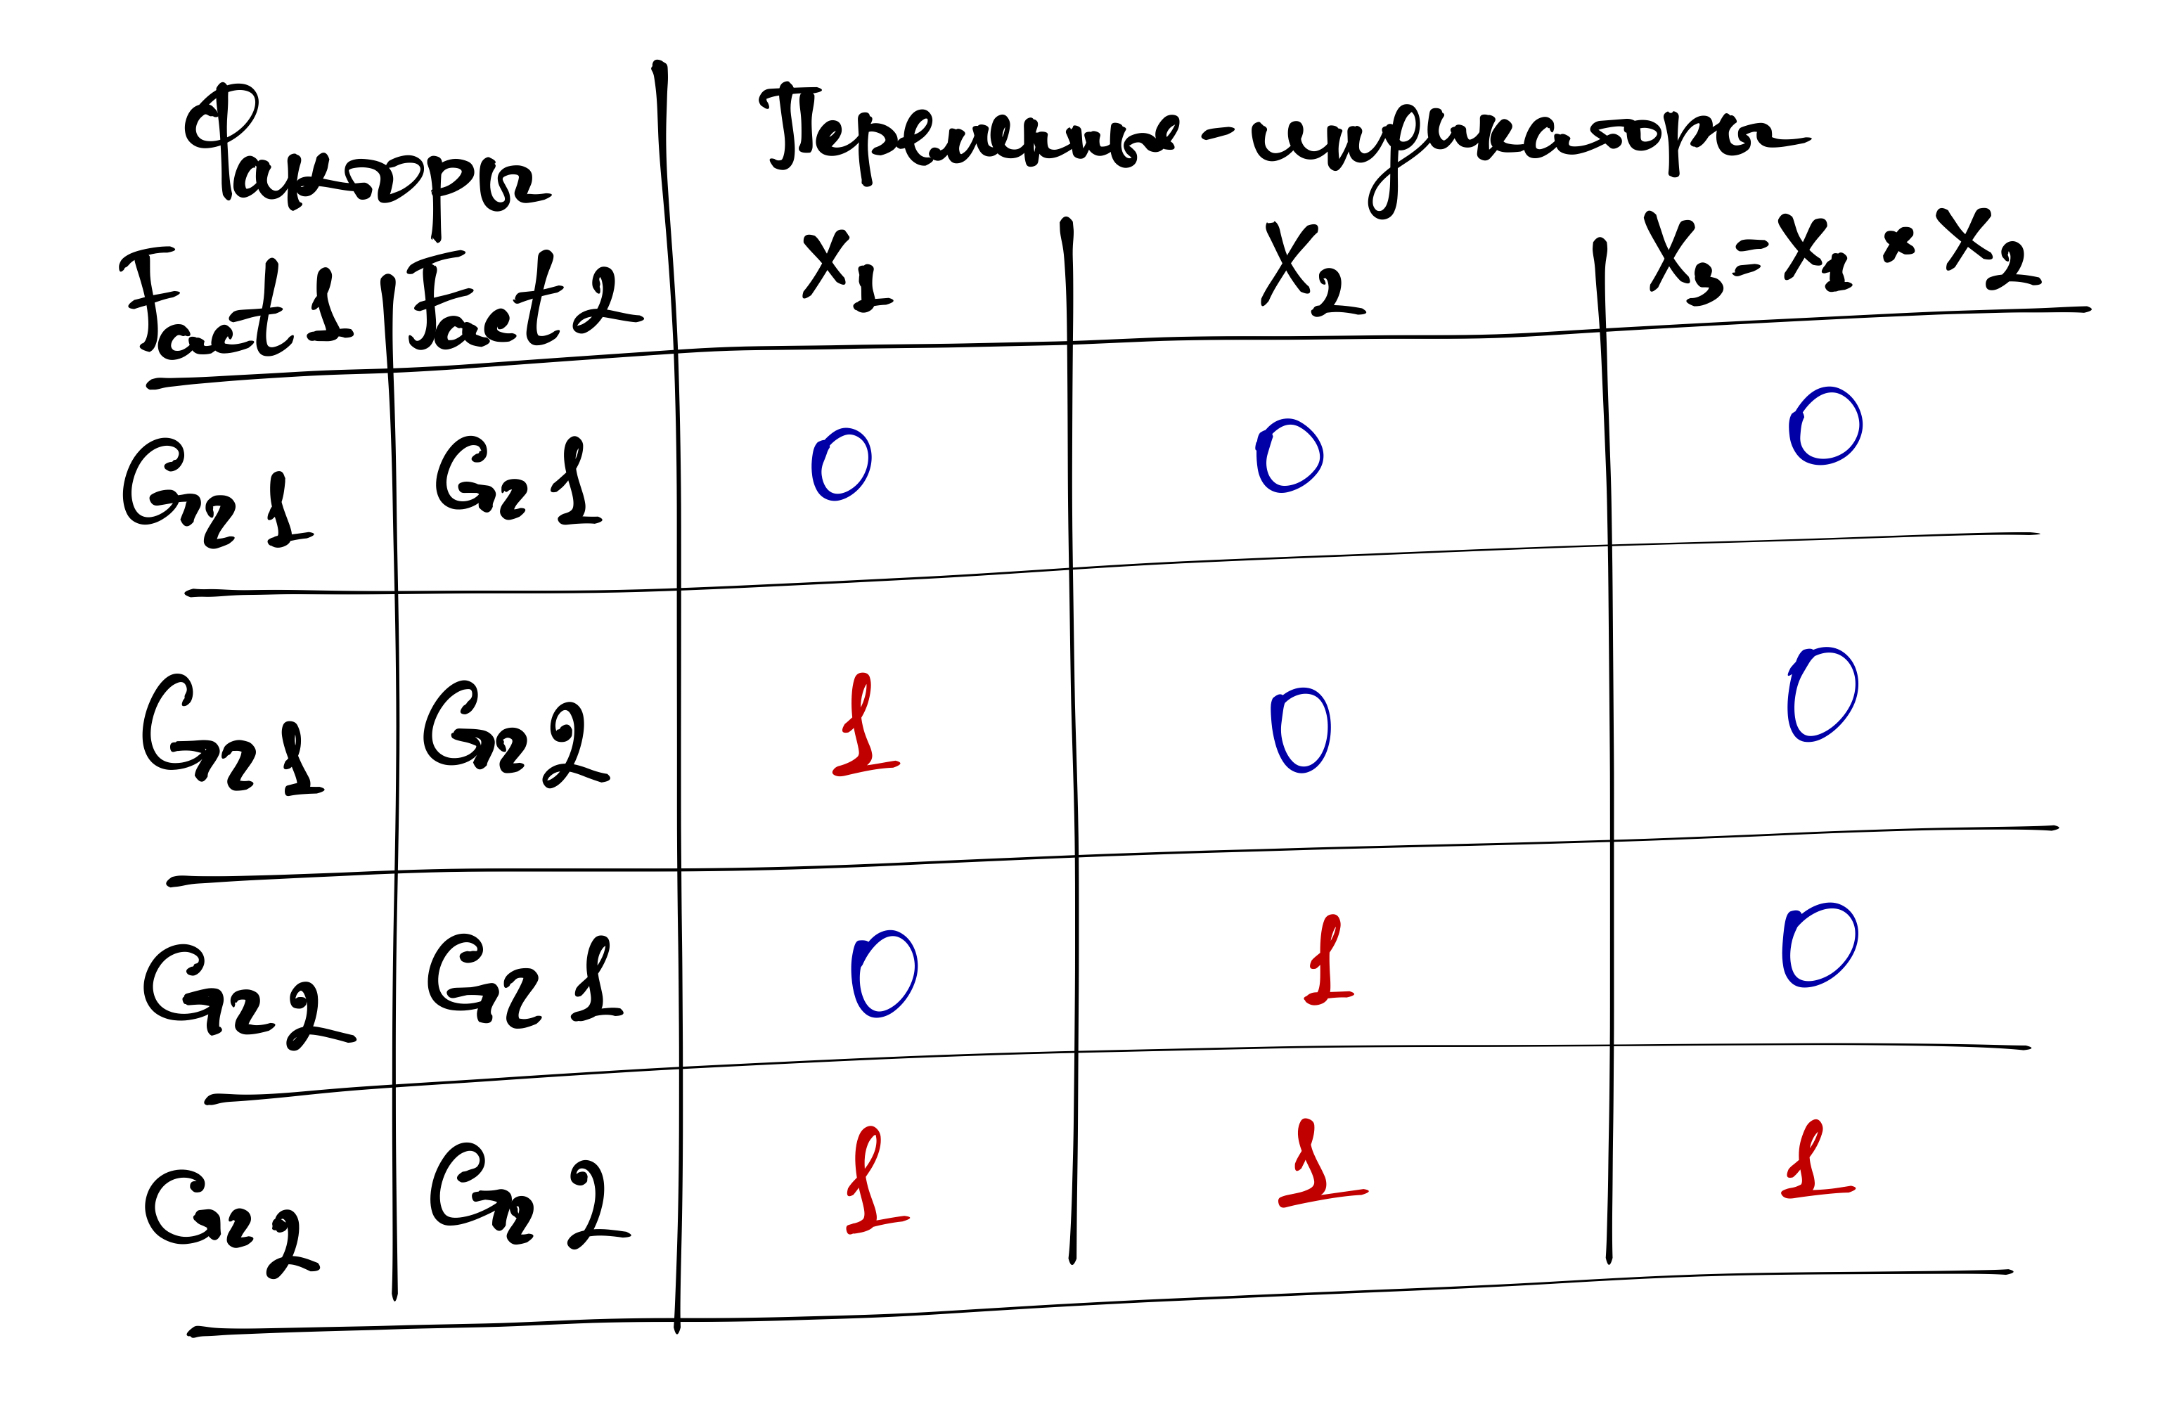 Факторы Переменные-индикаторы
Fact 1 Fact 2 X1 X2 X3 = X1 * X2
Gr 1 Gr 1 0 0 0
Gr 1 Gr 2 1 0 0
Gr 2 Gr 1 0 1 0
Gr 2 Gr 2 1 1 1